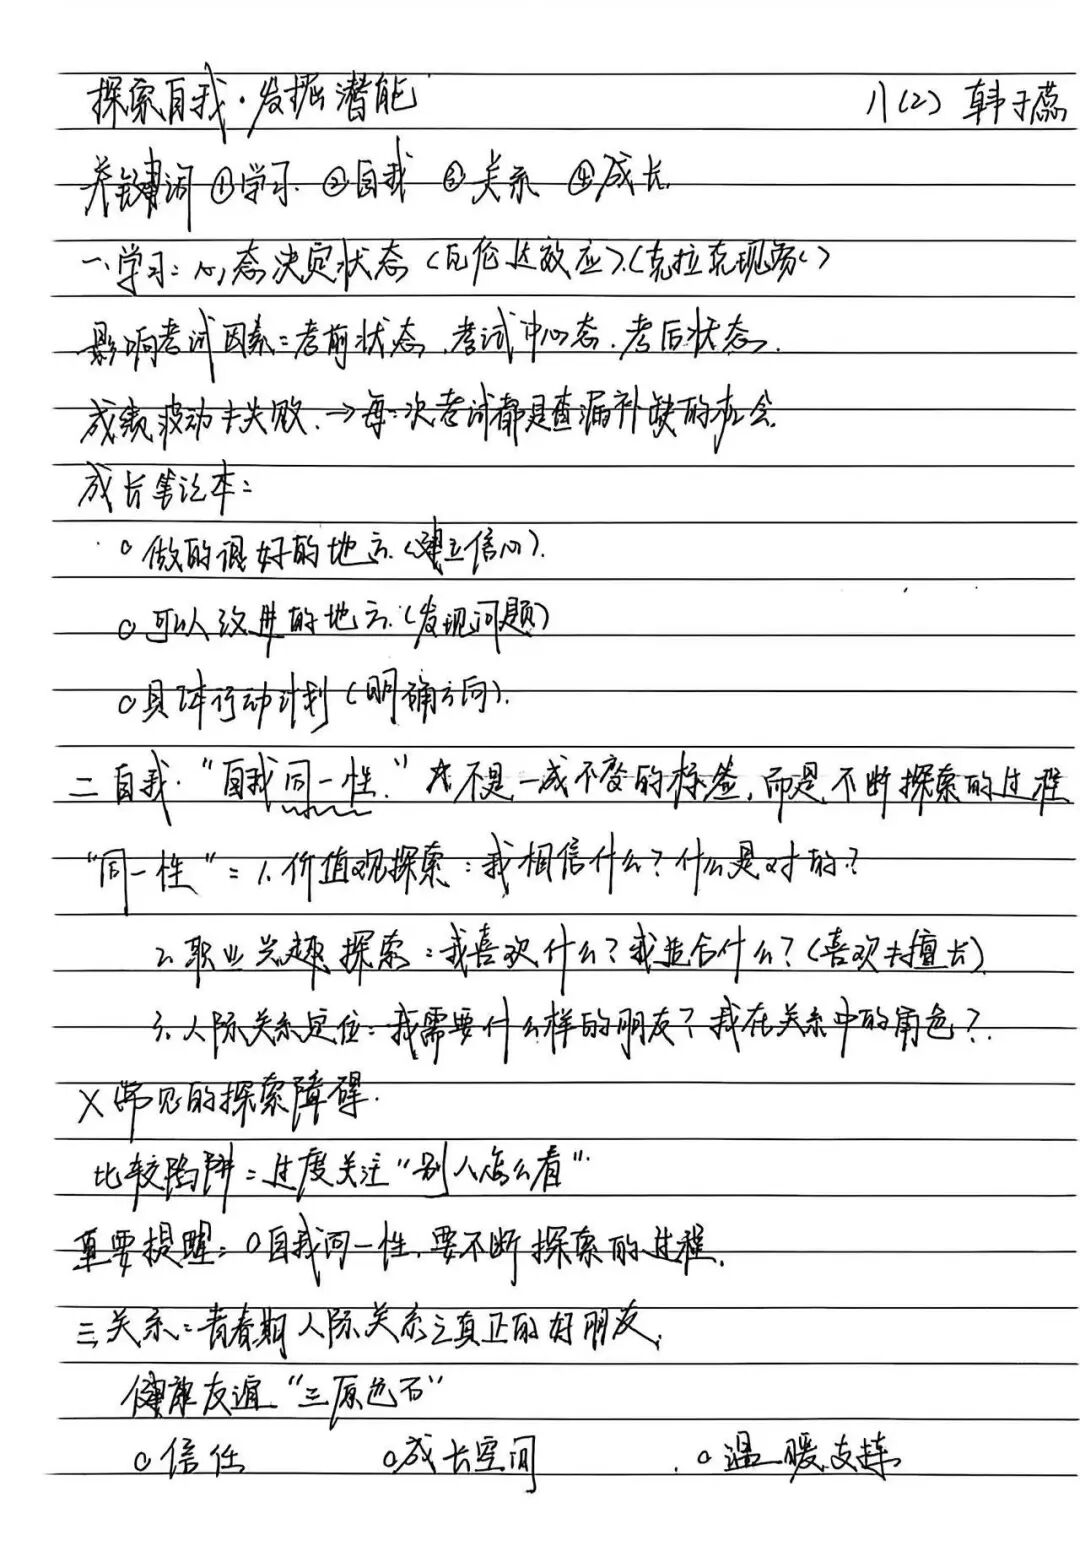 探索自我·发掘潜能 八(2) 韩子蕊
关键词 ①学习 ②自我 ③关系 ④成长
一、学习：心态决定状态（瓦伦达效应）（克拉克现象）
影响考试因素：考前状态、考试中心态、考后状态
成绩波动≠失败 → 每次考试都是查漏补缺的机会
成长笔记本：
○ 做的很好的地方（建立信心）
○ 可以改进的地方（发现问题）
○ 具体行动计划（明确方向）
二 自我·“自我同一性” 不是一成不变的标签，而是不断探索的过程
“同一性”：1.价值观探索：我相信什么？什么是对的？
2.职业兴趣探索：我喜欢什么？我适合什么？（喜欢≠擅长）
3.人际关系定位：我需要什么样的朋友？我在关系中的角色？
X 常见的探索障碍
比较陷阱：过度关注“别人怎么看”
重要提醒：○自我同一性，要不断探索的过程
三 关系：青春期人际关系之真正的好朋友
健康友谊“三原色石”
○ 信任 ○ 成长空间 ○ 温暖支持